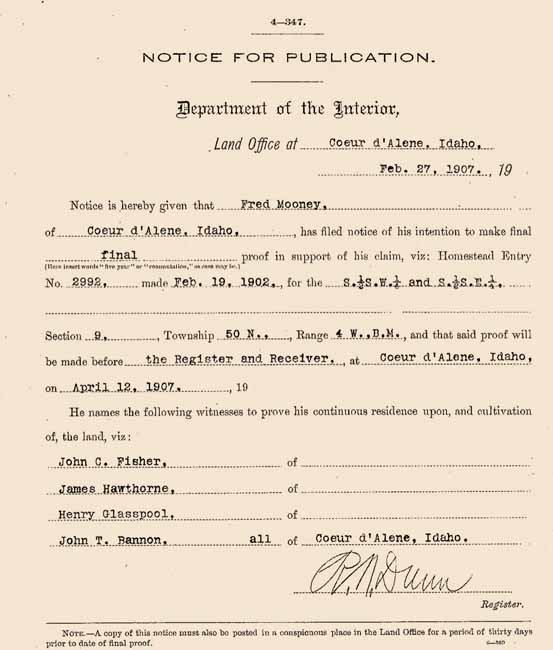 4—347.
NOTICE FOR PUBLICATION.
Department of the Interior,
Land Office at Coeur d'Alene, Idaho,
Feb. 27, 1907. , 19
Notice is hereby given that Fred Mooney,
of Coeur d'Alene, Idaho, , has filed notice of his intention to make final
final proof in support of his claim, viz: Homestead Entry
(Here insert words "five year" or "commutation," as case may be.)
No. 2992, made Feb. 19, 1902. , for the S.½S.W.¼ and S.½S.E.¼,
Section 9, , Township 50 N., , Range 4 W.,B.M. , and that said proof will
be made before the Register and Receiver. , at Coeur d'Alene, Idaho,
on April 12, 1907. , 19
He names the following witnesses to prove his continuous residence upon, and cultivation
of, the land, viz:
John C. Fisher, of
James Hawthorne, of
Henry Glasspool, of
John T. Bannon, all of Coeur d'Alene, Idaho.
R. N. Dunn
Register.
NOTE.—A copy of this notice must also be posted in a conspicuous place in the Land Office for a period of thirty days
prior to date of final proof.